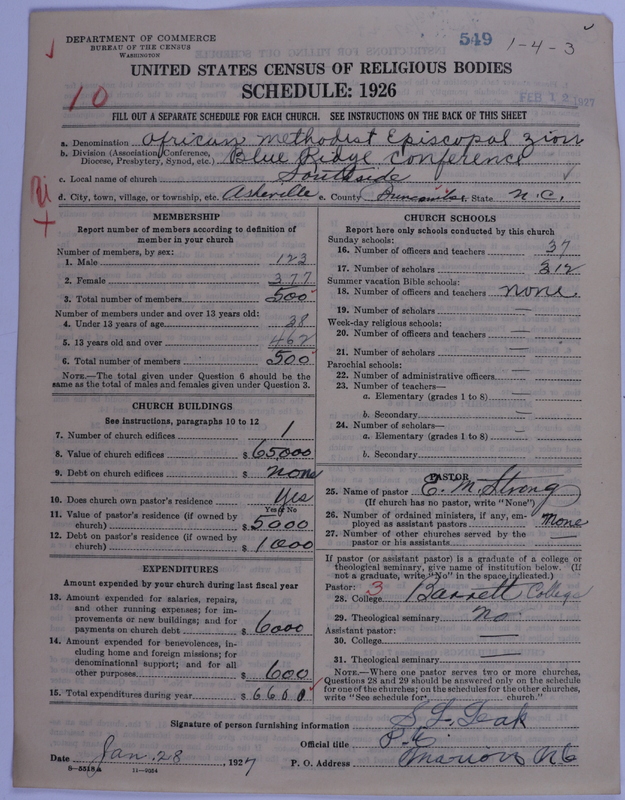 DEPARTMENT OF COMMERCE
BUREAU OF THE CENSUS
WASHINGTON
549 1-4-3
UNITED STATES CENSUS OF RELIGIOUS BODIES
SCHEDULE: 1926
10
FEB 12 1927
FILL OUT A SEPARATE SCHEDULE FOR EACH CHURCH. SEE INSTRUCTIONS ON THE BACK OF THIS SHEET
a. Denomination African Methodist Episcopal Zion
b. Division (Association, Conference, Diocese, Presbytery, Synod, etc.) Blue Ridge Conference
c. Local name of church Southside
d. City, town, village, or township, etc. Asheville e. County Buncombe State N.C.
MEMBERSHIP
Report number of members according to definition of
member in your church
Number of members, by sex:
1. Male 123
2. Female 377
3. Total number of members 500
Number of members under and over 13 years old:
4. Under 13 years of age 38
5. 13 years old and over 462
6. Total number of members 500
NOTE.—The total given under Question 6 should be
same as the total of males and females given under Question 3.
CHURCH BUILDINGS
See instructions, paragraphs 10 to 12
7. Number of church edifices 1
8. Value of church edifices $ 65,000
9. Debt on church edifices $ none
10. Does church own pastor's residence Yes
Yes or No
11. Value of pastor's residence (if owned by
church) $ 5000
12. Debt on pastor's residence (if owned by
church) $ 1000
EXPENDITURES
Amount expended by your church during last fiscal year
13. Amount expended for salaries, repairs,
and other running expenses; for im-
provements or new buildings; and for
payments on church debt $ 6000
14. Amount expended for benevolences, in-
cluding home and foreign missions; for
denominational support; and for all
other purposes $ 600
15. Total expenditures during year $ 6600
CHURCH SCHOOLS
Report here only schools conducted by this church
Sunday schools:
16. Number of officers and teachers 37
17. Number of scholars 312
Summer vacation Bible schools:
18. Number of officers and teachers none.
19. Number of scholars —
Week-day religious schools:
20. Number of officers and teachers —
21. Number of scholars —
Parochial schools:
22. Number of administrative officers —
23. Number of teachers—
a. Elementary (grades 1 to 8) —
b. Secondary —
24. Number of scholars—
a. Elementary (grades 1 to 8) —
b. Secondary
PASTOR
25. Name of pastor E. M. Strong
(If church has no pastor, write "None")
26. Number of ordained ministers, if any, em-
ployed as assistant pastors none
27. Number of other churches served by the
pastor or his assistants —
If pastor (or assistant pastor) is a graduate of a college or
theological seminary, give name of institution below. (If
not a graduate, write "No" in the space indicated.)
Pastor: 3
28. College Barrett College
29. Theological seminary no
Assistant pastor:
30. College —
31. Theological seminary —
NOTE.—Where one pastor serves two or more churches,
Questions 28 and 29 should be answered only on the schedule
for one of the churches; on the schedules for the other churches,
write "See schedule for church."
Signature of person furnishing information
Official title P. E.
Date Jan. 28, 1927 P. O. Address Marion NC
8-5518a 11-9054